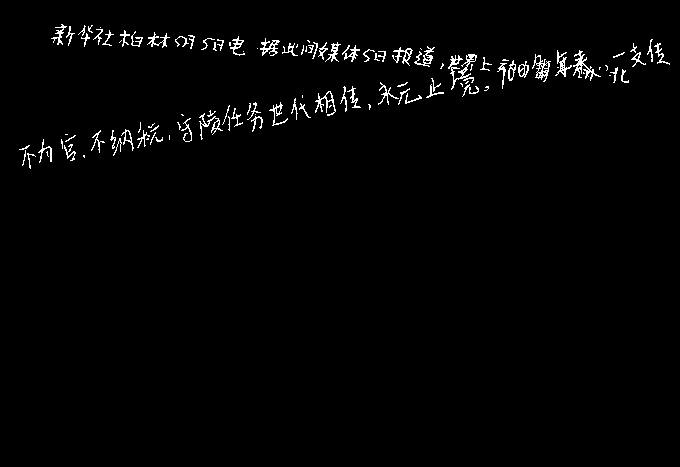 新华社柏林5月5日电 据此间媒体5日报道,世界上 一支传
不为官,不纳税,守陵任务世代相传,永无止境。